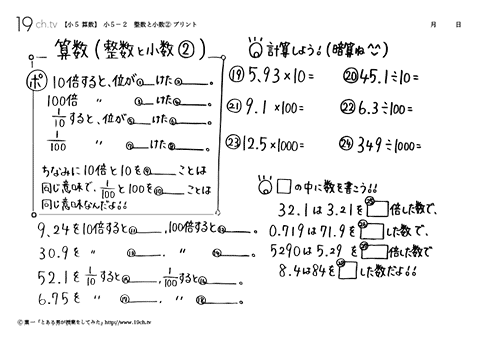 19ch.tv 【小5算数】 小5-2 整数と小数② プリント 月 日
算数(整数と小数②)
ポ 10倍すると、位が けた 。
100倍 〃 けた 。
1/10すると、位が けた 。
1/100 〃 けた 。
ちなみに10倍と10を ことは
同じ意味で、1/100と100を ことは
同じ意味なんだよ!!
9.24を10倍すると 、100倍すると 。
30.9を 〃 、 〃 。
52.1を1/10すると 、1/100すると 。
6.75を 〃 ⑰ 、 〃 ⑱ 。
計算しよう!(暗算ね
⑲ 5.93×10=
⑳ 45.1÷10=
㉑ 9.1×100=
㉒ 6.3÷100=
㉓ 12.5×1000=
㉔ 349÷1000=
□の中に数を書こう!!
32.1は3.21を 倍した数で、
0.719は71.9を した数で、
5290は5.29を 倍した数で
8.4は84を した数だよ!!
Ⓒ葉一「とある男が授業をしてみた」http://www.19ch.tv